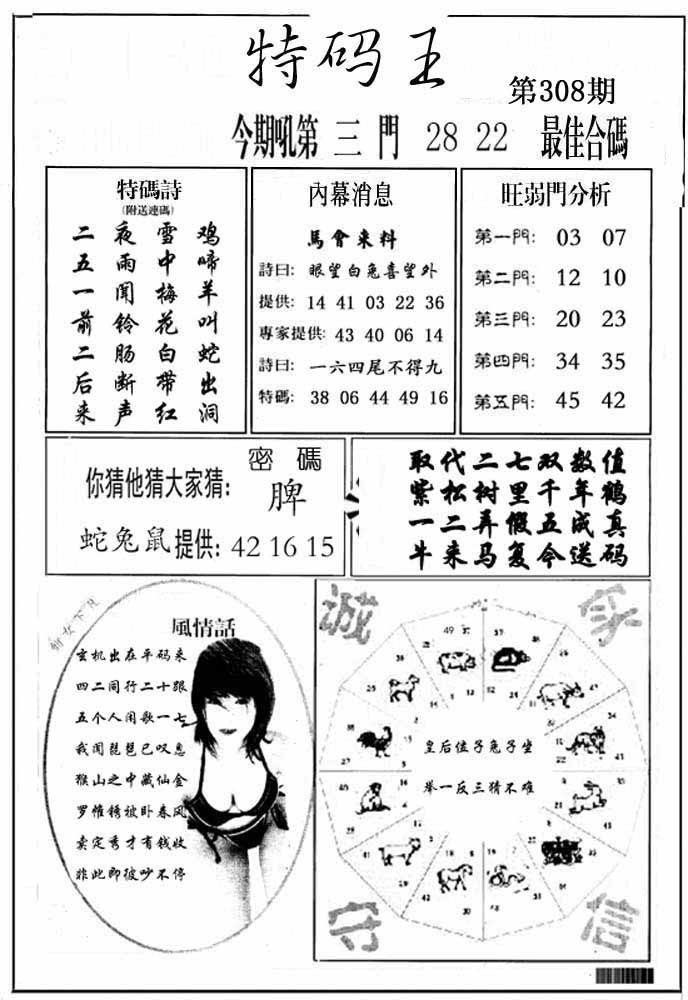 特码王
第308期
今期吼第 三 門 28 22 最佳合碼
特碼詩
(附送連碼)
二 夜 雪 鸡
五 雨 中 啼
一 闻 梅 羊
前 铃 花 叫
二 肠 白 蛇
后 断 带 出
来 声 红 洞
內幕消息
馬會来料
詩曰: 眼望白兔喜望外
提供: 14 41 03 22 36
專家提供: 43 40 06 14
詩曰: 一六四尾不得九
特碼: 38 06 44 49 16
旺弱門分析
第一門: 03 07
第二門: 12 10
第三門: 20 23
第四門: 34 35
第五門: 45 42
密碼
你猜他猜大家猜: 脾
蛇兔鼠提供: 42 16 15
取代二七双数值
紫松树里千年鹤
一二弄假五成真
牛来马复今送码
風情話
玄机出在平码来
四二同行二十跟
五个人闲歌一七
我闻琵琶已叹息
猴山之中藏仙金
罗帷锈被卧春风
卖定秀才有钱收
非此即彼吵不停
诚
家
守
信
皇后位子兔子坐
举一反三猜不难